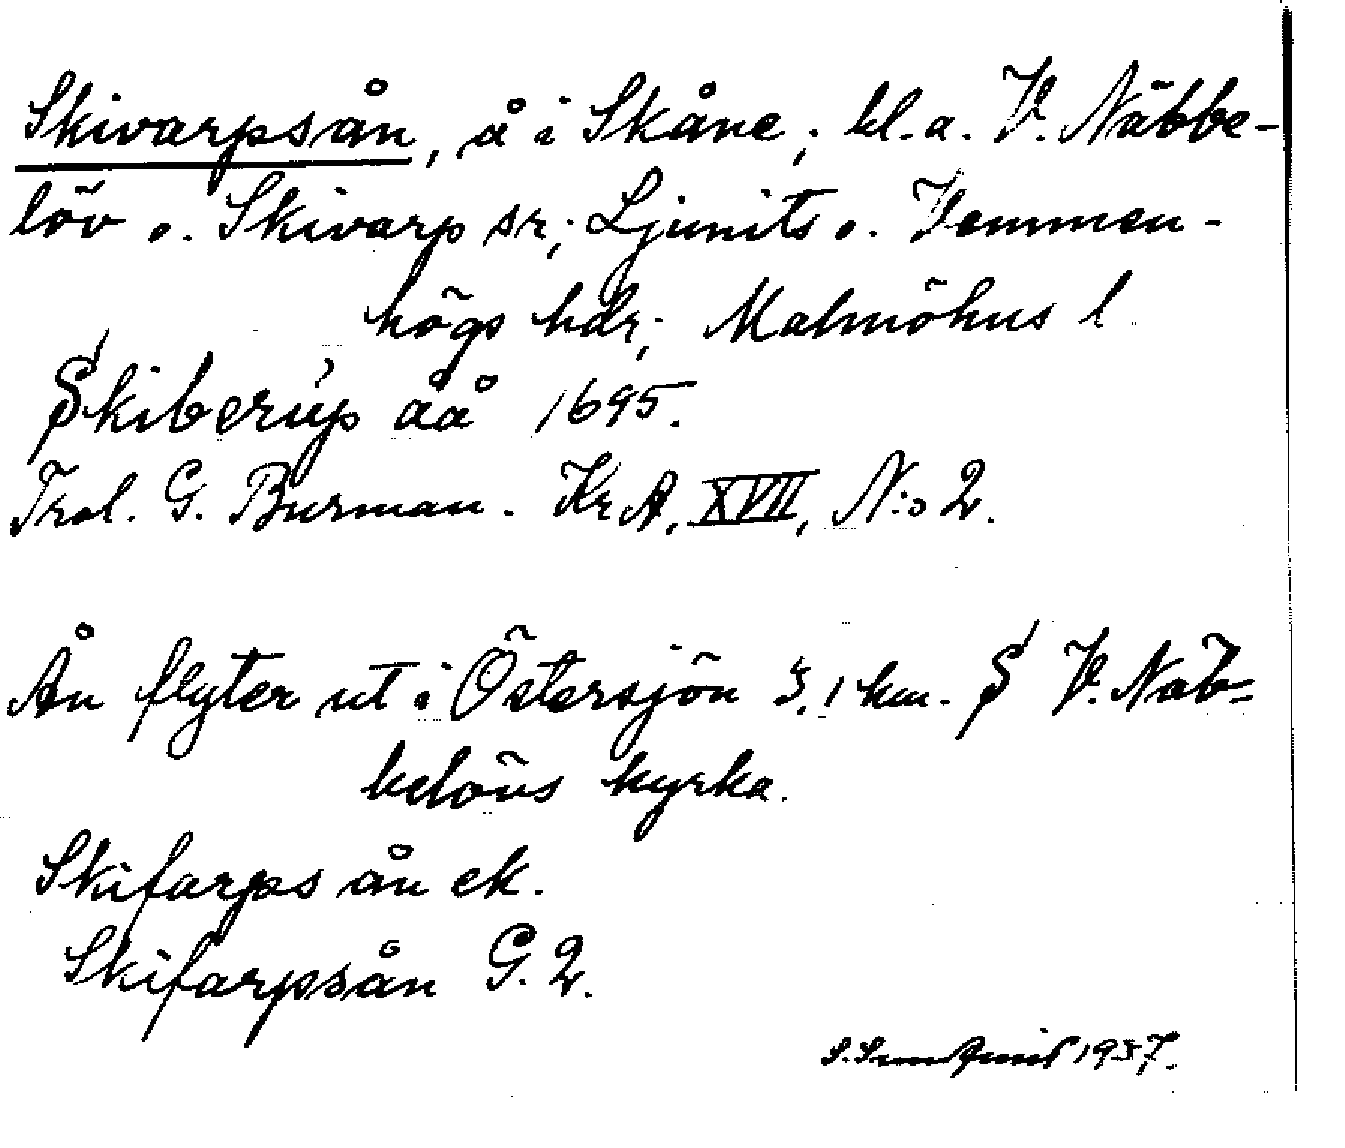 Skivarpsån, å i Skåne; bl.a. V. Näbbe-
löv o. Skivarp sr; Ljunits o. Vemmen-
högs hdr; Malmöhus l
Skiberup åå 1695.
Trol. G. Burman. KrA, XVII, N:o 2.
Ån flyter ut i Östersjön 3,1 km. S V. Näb-
belövs kyrka.
Skifarps ån ek.
Skifarpsån G. 2.
1937.